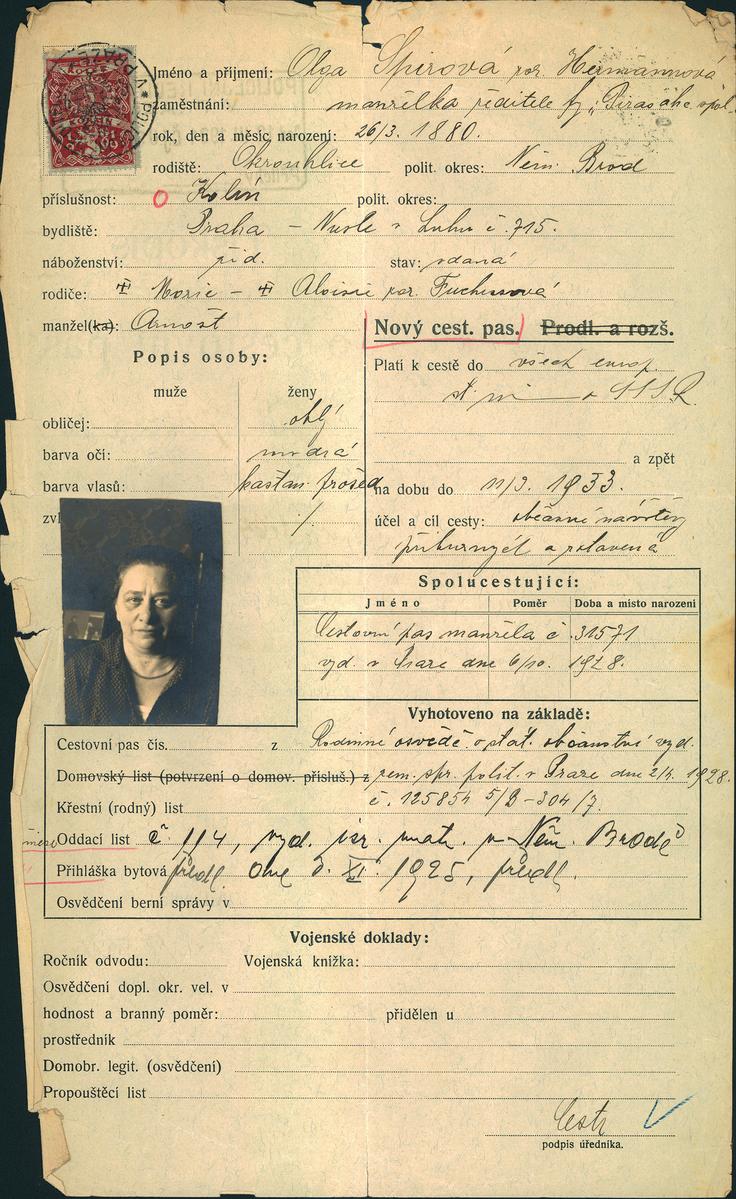 Jméno a příjmení: Olga Spirová roz. Hermannová
zaměstnání: manželka ředitele fy „
rok, den a měsíc narození: 26/3. 1880.
rodiště: Okrouhlice polit. okres: Něm. Brod
příslušnost: Kolín polit. okres:
bydliště: Praha – Nusle v Luhu č. 715.
náboženství: žid. stav: vdaná
rodiče: – Aloisie roz. Fuchsová
manžel(ka): Arnošt
Nový cest. pas. Prodl. a rozš.
Popis osoby:
Platí k cestě do všech europ.
muže ženy
st. SSSR
obličej: oblý
barva očí: modrá
a zpět
barva vlasů: kaštan. prošed.
na dobu do 11/3. 1933.
zvl /.
účel a cíl cesty: občasné návštěvy
příbuzných a
Spolucestující:
Jméno Poměr Doba a místo narození
Cestovní pas manžela č. 31571
vyd. v Praze dne 6/10. 1928.
Vyhotoveno na základě:
Cestovní pas čís. z Rodinné osvědč. o stát. občanství vyd.
Domovský list (potvrzení o domov. přísluš.) z zem. spr. polit. v Praze dne 2/4. 1928.
Křestní (rodný) list č. 125854 5/B-304/7.
Oddací list č. 114, vyd. isr. mat. v Něm. Brodě
Přihláška bytová předl. dne XI. 1925, předl.
Osvědčení berní správy v
Vojenské doklady:
Ročník odvodu: Vojenská knížka:
Osvědčení dopl. okr. vel. v
hodnost a branný poměr: přidělen u
prostředník
Domobr. legit. (osvědčení)
Propouštěcí list
podpis úředníka.